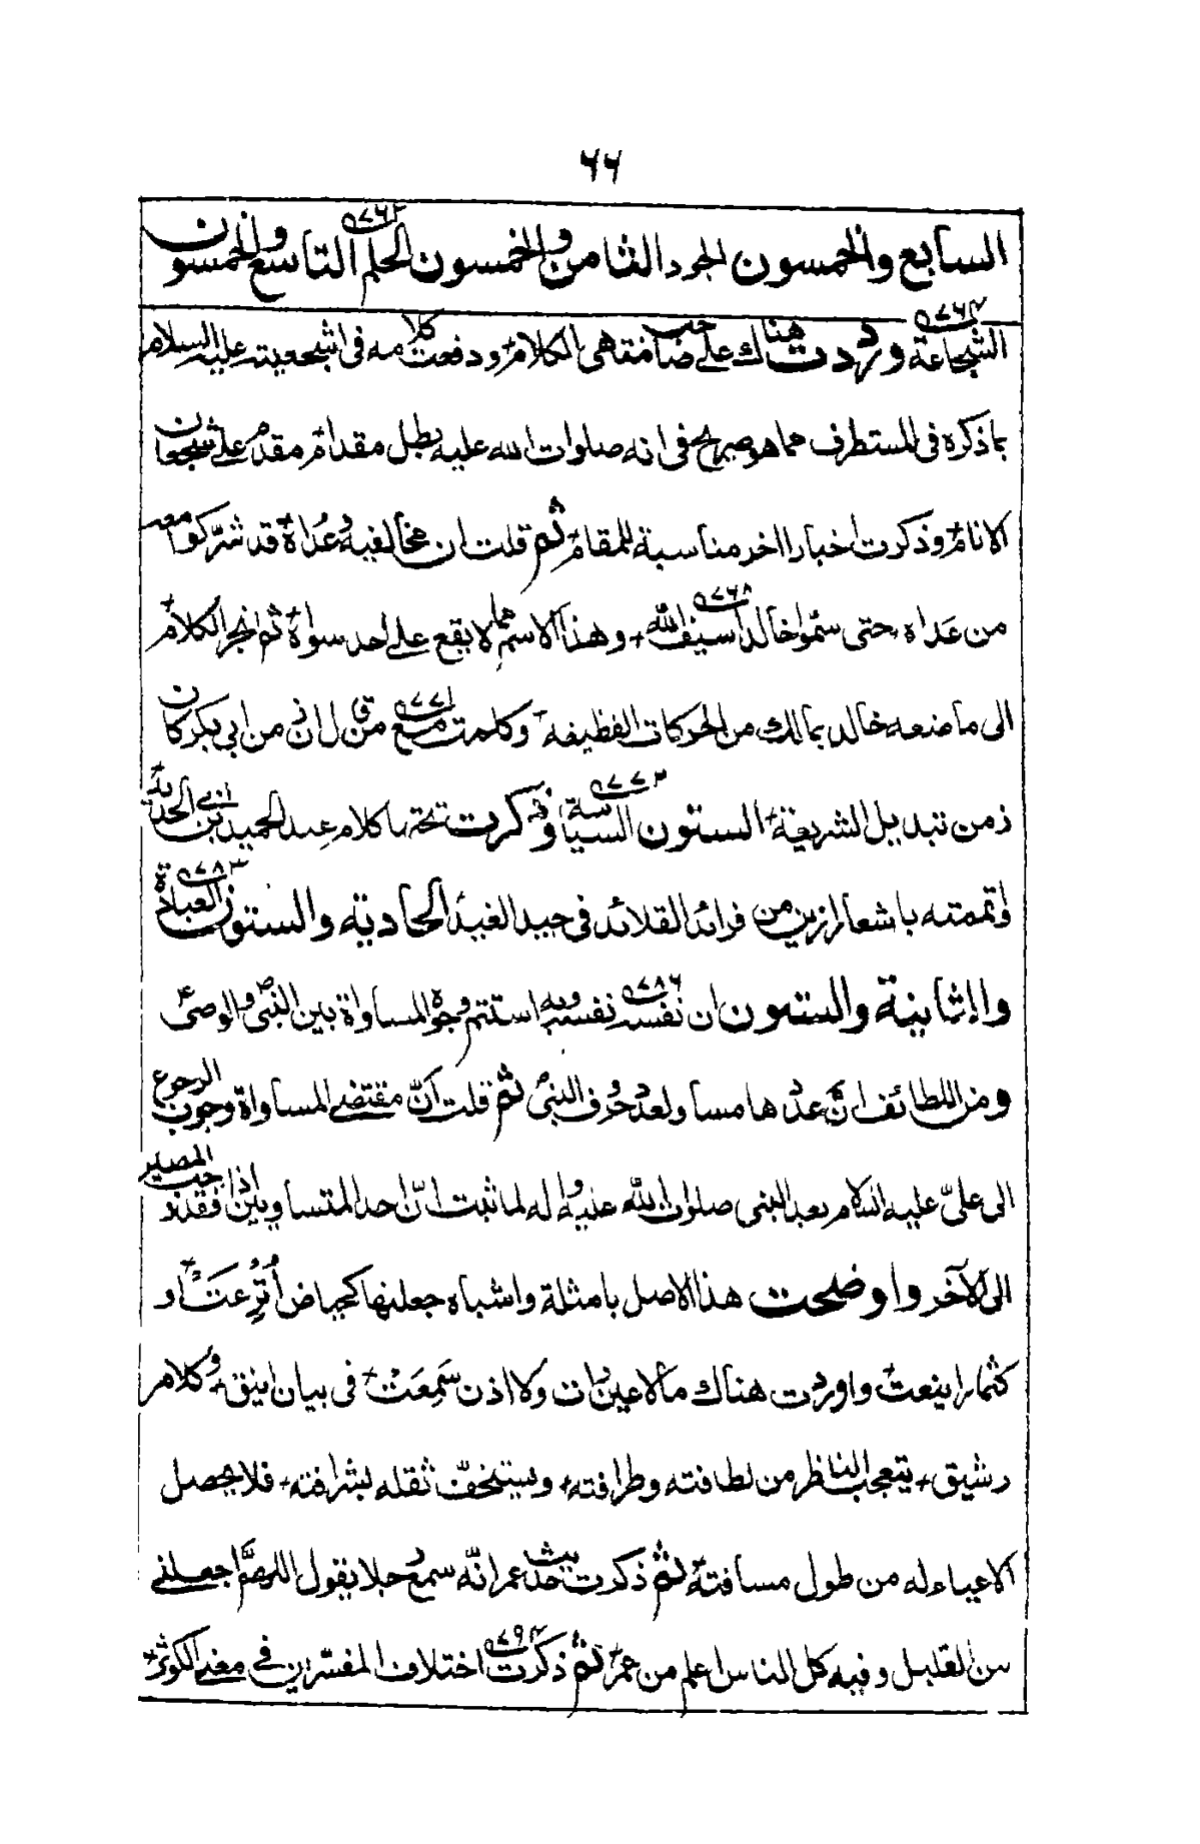 ٦٦
السابع والخمسون الجود الثامن والخمسون الحلم التاسع والخمسون
الشجاعة ورددت هناك على صاحب منتهى الكلام ودفعت كلامه فى اشجعيته عليه السلام
بما ذكره فى المستطرف مما هو صريح فى انه صلوات الله عليه بطل مقدام مقدم على شجعان
الانام وذكرت اخبارا اخر مناسبة للمقام ثم قلت ان مخالفيه وعداة قد شركوا معه
من عداه حتى سموا خالدا سيف الله وهذا الاسم مما لا يقع على احد سواه ثم انجر الكلام
الى ما صنعه خالد بمالك من الحركات الفظيعة وكلمت مع من قال ان من ابى بكر كان
ذ من تبديل الشريعة الستون السياسة وذكرت تحتها كلام عبد الحميد بن ابى الحديد
واتممته باشعار ازين من فرائد القلائد فى جيد الغيد الحادية والستون العبادة
والثانية والستون ان نفسه نفسه وبه استتم وجوه المساواة بين النبى ص والوصى ع
ومن اللطائف ان عدها مساو لعدد حروف النبى ثم قلت ان مقتضى المساواة وجوب الرجوع
الى على عليه السلام بعد النبى صلوات الله عليه واله لما ثبت ان احد المتساويين اذا فقد وجب المصير
الى الآخر واوضحت هذا الاصل بامثلة واشباه جعلنها كحياض أترعت او
كثمار اينعت واوردت هناك ما لا عين رات ولا اذن سمعت فى بيان انيق وكلام
رشيق يتعجب الناظر من لطافته وطرافته ويستخف ثقله بشرافته فلا يحصل
الاعياء له من طول مسافته ثم ذكرت حديث عمر انه سمع رجلا يقول اللهم اجعلنى
من القليل وفيه كل الناس اعلم من عمر ثم ذكرت اختلاف المفسرين فى معنى الكوثر